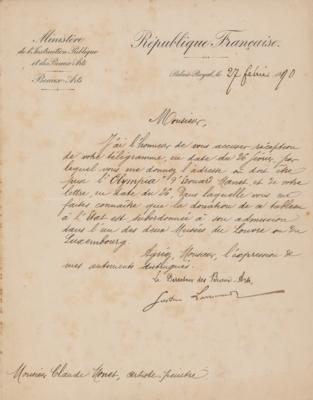 Ministère
de l'Instruction Publique
et des Beaux-Arts
Beaux-Arts
République Française.
Palais-Royal, le 27 février 1890
Monsieur,
J'ai l'honneur de vous accuser réception
de votre télégramme, en date du 26 février, par
lequel vous me donnez l'adresse où doit être
prise l'Olympia d'Edouard Manet et de votre
lettre, en date du 26, dans laquelle vous me
faites connaître que la donation de ce tableau
à l'Etat est subordonnée à son admission
dans l'un des deux Musées du Louvre ou du
Luxembourg.
Agréez, Monsieur, l'expression de
mes sentiments distingués.
Le Directeur des Beaux-Arts,
Monsieur Claude Monet, artiste peintre